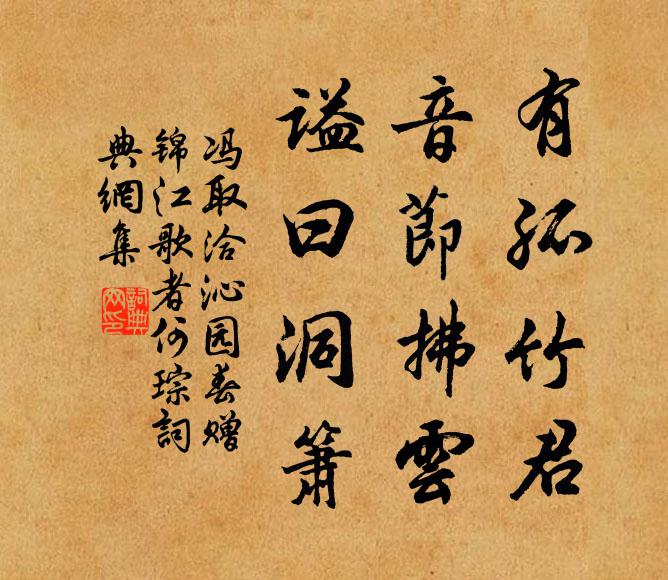 有孤竹君
音節拂雲
謚曰洞箫
冯取洽沁园春赠
锦江歌者何琮詞
典網集
詞典網印